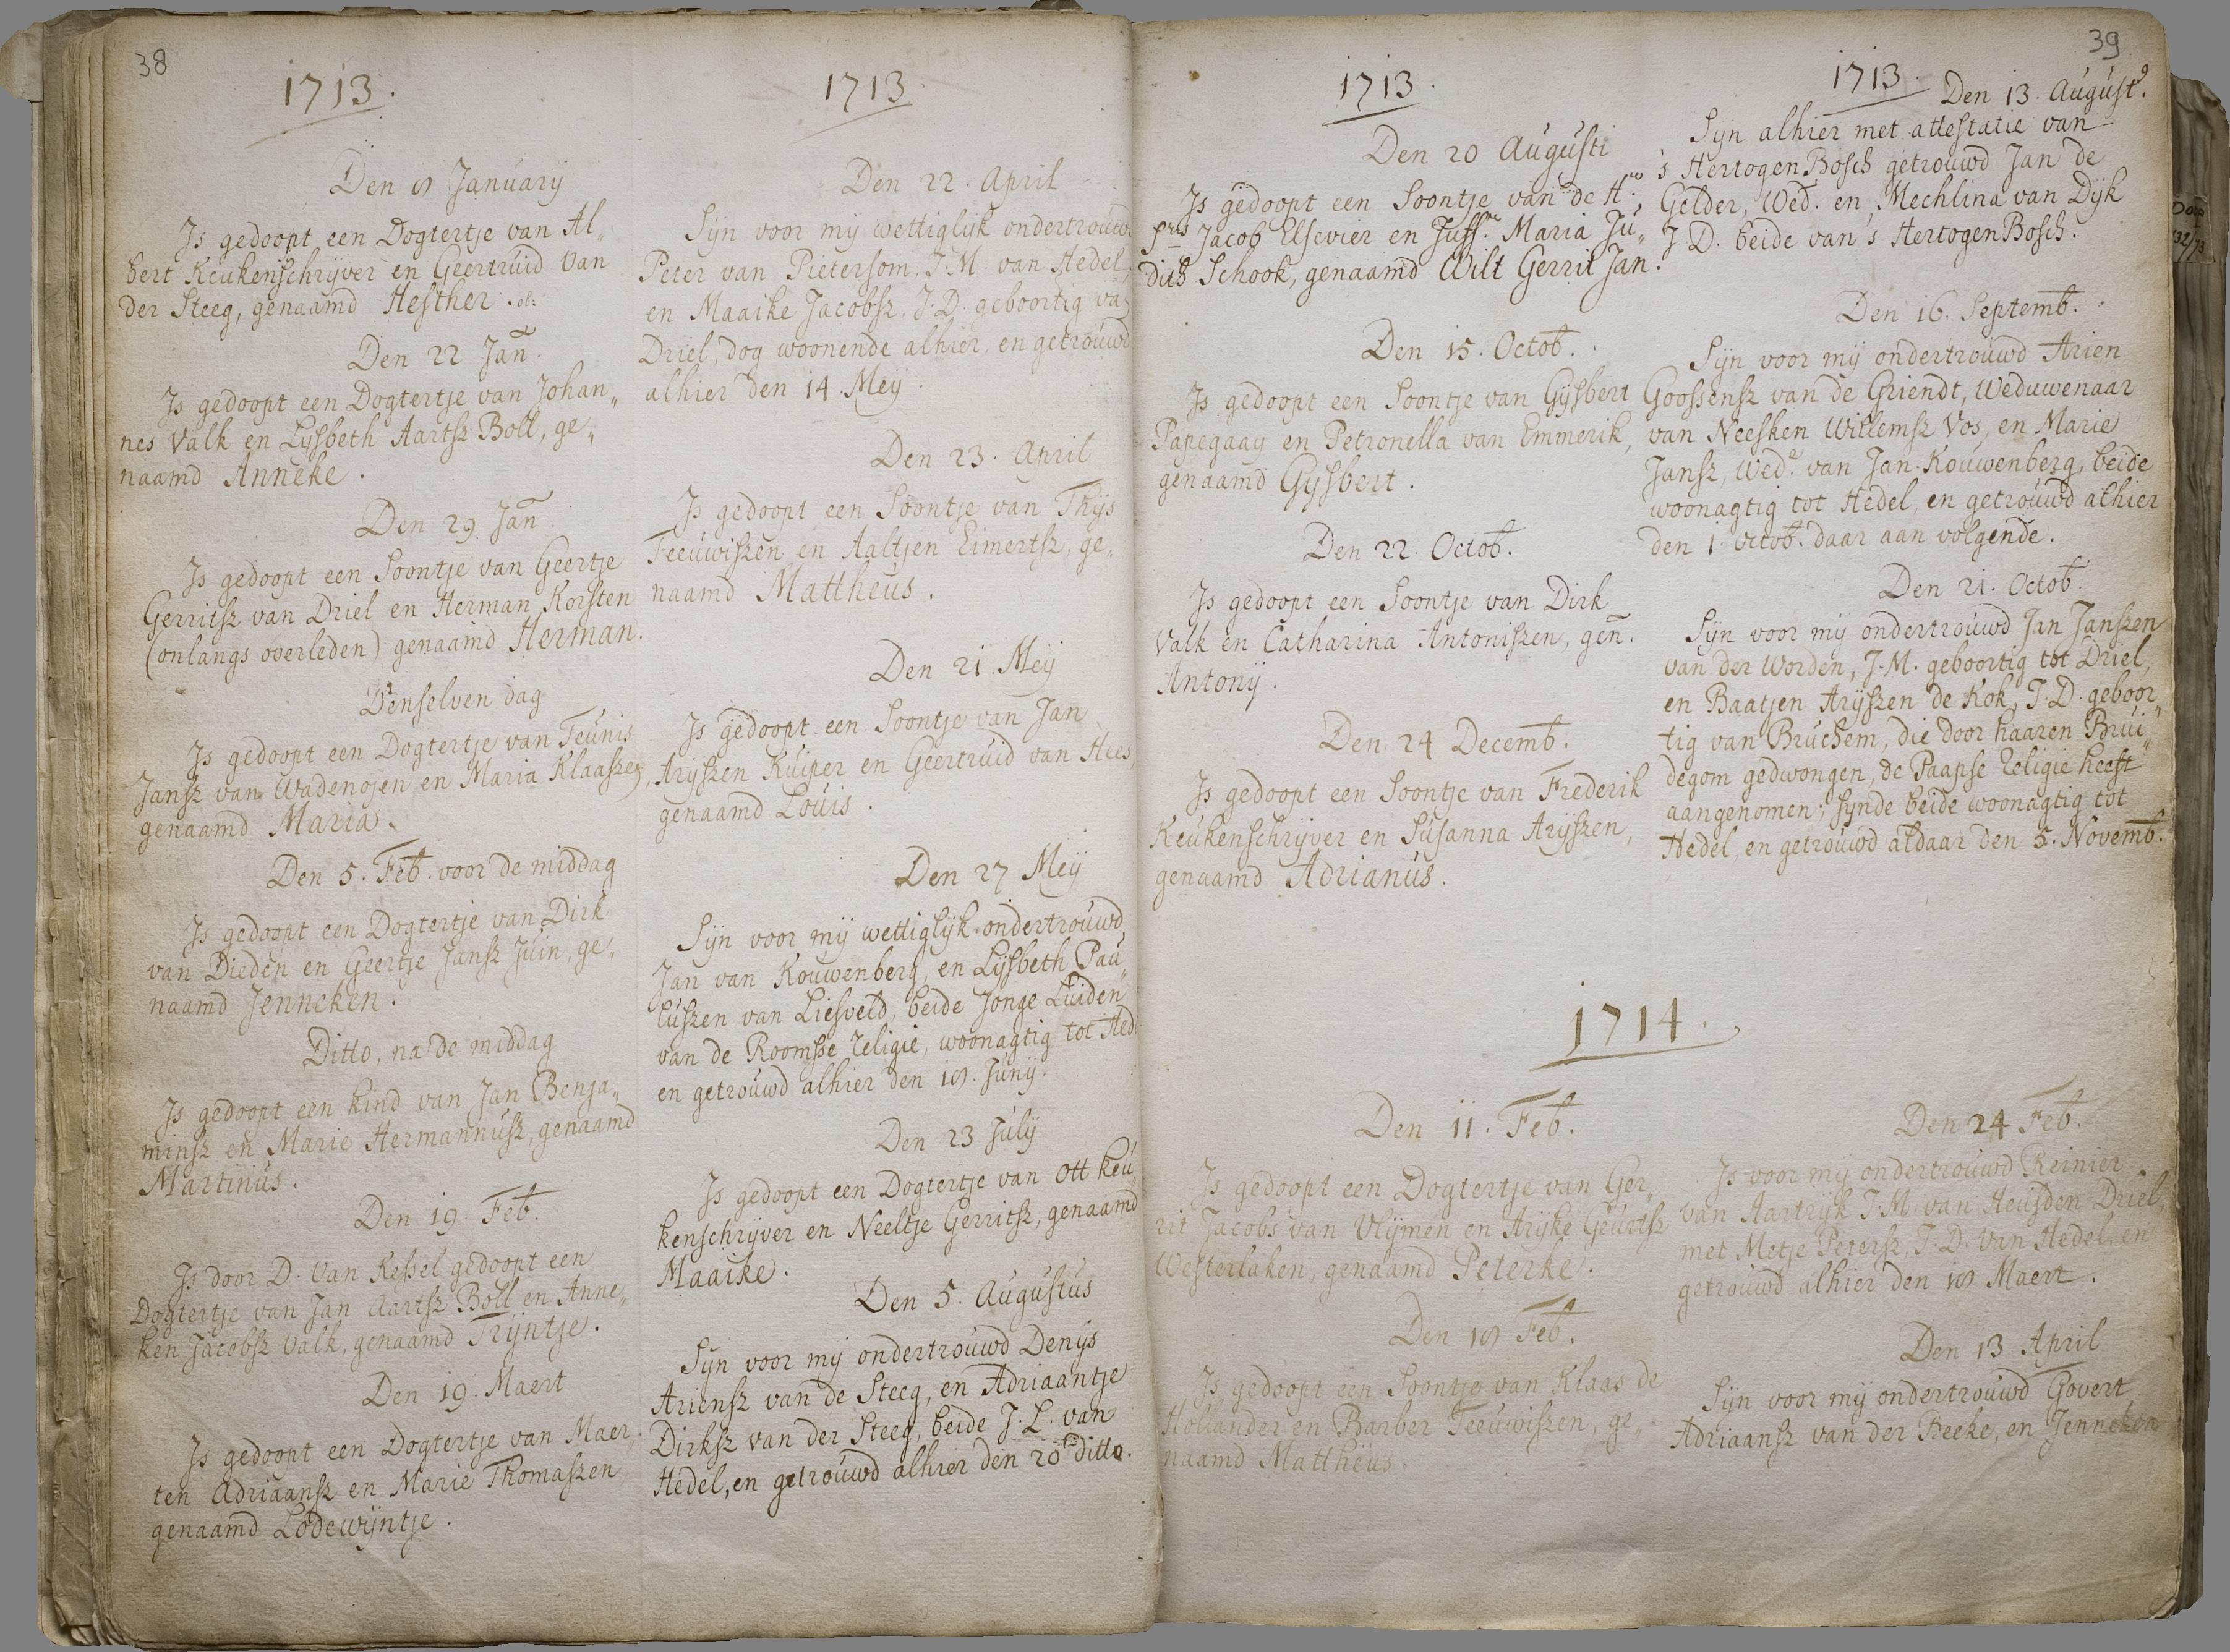 38
1713.
Den 8 January
Is gedoopt een Dogtertje van Al„
bert Keukenschrijver en Geertruid Van
der Steeg, genaamd Hesther.
Den 22 Jañ.
Is gedoopt een Dogtertje van Johan„
nes Valk en Lijsbeth Aartsz Boll, ge„
naamd Anneke.
Den 29 Jañ.
Is gedoopt een Soontje van Geertje
Gerritsz van Driel en Herman Korsten
(onlangs overleden) genaamd Herman.
Denselven dag
Is gedoopt een Dogtertje van Teunis
Jansz van Wadenojen en Maria Klaaszen,
genaamd Maria.
Den 5. Feb. voor de middag
Is gedoopt een Dogtertje van Dirk
van Dieden en Geertje Jansz Juin, ge„
naamd Jenneken.
Ditto, na de middag
Is gedoopt een kind van Jan Benja„
minsz en Marie Hermannusz, genaamd
Martinus.
Den 19. Feb.
Is door D. Van Kessel gedoopt een
Dogtertje van Jan Aartsz Boll en Anne„
ken Jacobsz Valk, genaamd Trijntje.
Den 19. Maert
Is gedoopt een Dogtertje van Maer„
ten Adriaansz en Marie Thomaszen
genaamd Lodewijntje.
1713.
Den 22. April
Sijn voor mij wettiglijk ondertrouwd
Peter van Pietersom, J.M. van Hedel,
en Maaike Jacobsz, J.D. geboortig va
Driel, dog woonende alhier, en getrouwd
alhier den 14. Meij.
Den 23. April
Is gedoopt een Soontje van Thijs
Teeuwiszen en Aaltjen Eimertsz, ge„
naamd Mattheus.
Den 21. Meij
Is gedoopt een Soontje van Jan
Arijszen Kuiper en Geertruid van Hees,
genaamd Louis.
Den 27 Meij
Sijn voor mij wettiglijk ondertrouwd
Jan van Kouwenberg, en Lijsbeth Pau„
luszen van Liesveld, beide Jonge Luiden
van de Roomsse religie, woonagtig tot Hed
en getrouwd alhier den 18. Junij.
Den 23 Julij
Is gedoopt een Dogtertje van Ott Keu„
kenschrijver en Neeltje Gerritsz, genaamd
Maaike.
Den 5. Augustus
Sijn voor mij ondertrouwd Denijs
Ariensz van de Steeg, en Adriaantje
Dirksz van der Steeg, beide J.L. van
Hedel, en getrouwd alhier den 20 ditto.
39
1713.
Den 20 Augusti
Is gedoopt een Soontje van de H.
Jacob Elsevier en Juff. Maria Ju„
dith Schook, genaamd Wilt Gerrit Jan.
Den 15. Octob.
Is gedoopt een Soontje van Gijsbert
Papegaay en Petronella van Emmerik,
genaamd Gijsbert.
Den 22. Octob.
Is gedoopt een Soontje van Dirk
Valk en Catharina Antoniszen, geñ.
Antonij.
Den 24 Decemb.
Is gedoopt een Soontje van Frederik
Keukenschrijver en Susanna Arijszen,
genaamd Adrianus.
1713.
Den 13. August.
Sijn alhier met attestatie van
's HertogenBosch getrouwd Jan de
Gelder, Wed. en Mechlina van Dijk
J D. beide van 's HertogenBosch.
Den 16. Septemb.
Sijn voor mij ondertrouwd Arien
Goossensz van de Griendt, Weduwenaar
van Neesken Willemsz Vos, en Marie
Jansz, Wed.e van Jan Kouwenberg, beide
woonagtig tot Hedel, en getrouwd alhier
den 1. Octob. daar aan volgende.
Den 21. Octob.
Sijn voor mij ondertrouwd Jan Janszen
van der Worden, J.M. geboortig tot Driel,
en Baatjen Arijszen de Kok, J.D. geboor„
tig van Bruchem, die door haaren Brui„
degom gedwongen, de Paapse religie heeft
aangenomen; sijnde beide woonagtig tot
Hedel, en getrouwd aldaar den 5. Novemb.
1714.
Den 11. Feb.
Is gedoopt een Dogtertje van Ger„
rit Jacobs van Vlijmen en Arijke Geurtsz
Westerlaken, genaamd Peterke.
Den 18 Feb.
Is gedoopt een Soontje van Klaas de
Hollander en Barber Teeuwiszen, ge„
naamd Mattheus.
Den 24 Feb.
Is voor mij ondertrouwd Reinier
van Aartrijk J.M. van Heusden Driel,
met Metje Petersz, J.D. van Hedel, en
getrouwd alhier den 18 Maert.
Den 13 April
Sijn voor mij ondertrouwd Govert
Adriaansz van der Beeke, en Jenneken